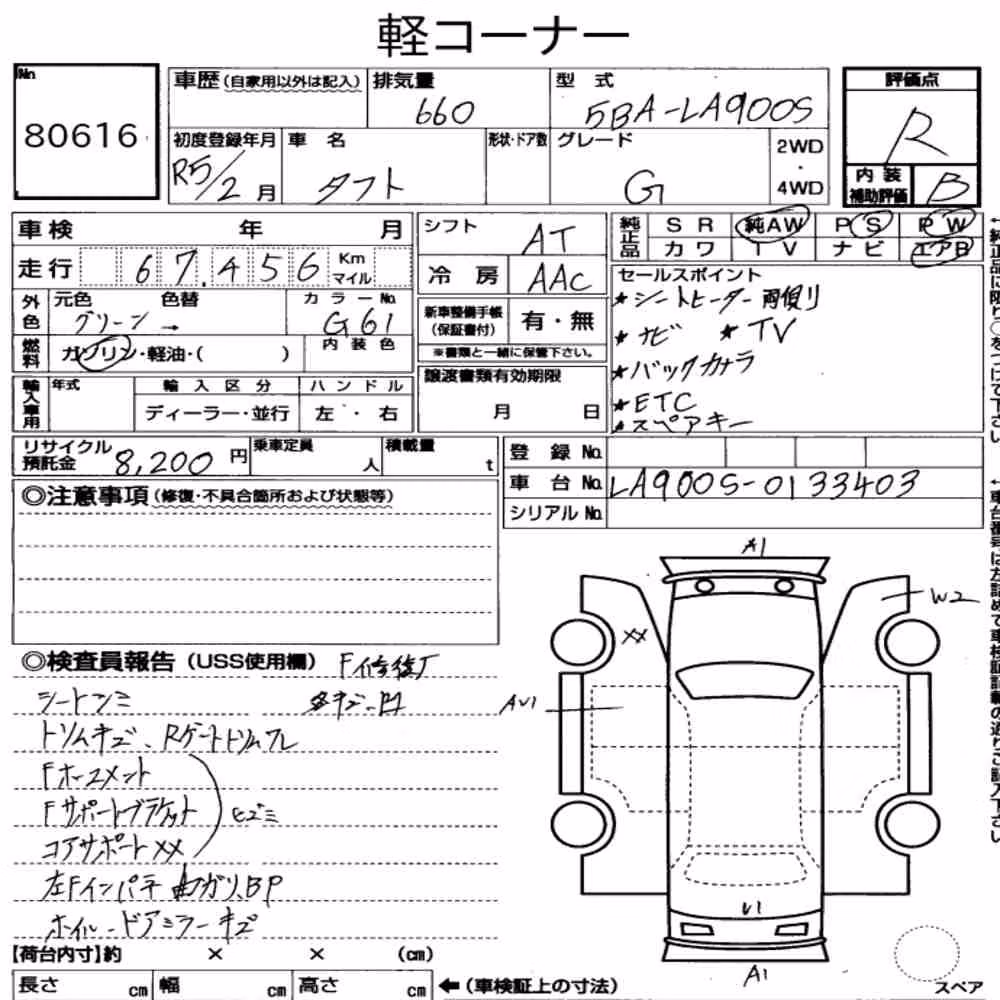 軽コーナー
No 80616
車歴 (自家用以外は記入) 排気量 660 型 式 5BA-LA900S 評価点 R
初度登録年月 R5/2月 車 名 タフト 形状・ドア数 グレード G 2WD・4WD 内装補助評価 B
車検 年 月 シフト AT 純正品 SR 純AW PS PW
走行 67,456 Km マイル 冷房 AAC カワ TV ナビ エアB
外色 元色 グリーン → 色替 カラーNo. G61
燃料 ガソリン・軽油・( ) 内装色
新車整備手帳 (保証書付) 有・無
※書類と一緒に保管下さい。
セールスポイント
★シートヒーター両側リ
★ナビ ★TV
★バックカメラ
★ETC
★スペアキー
輸入車用 年式 輸入区分 ハンドル
ディーラー・並行 左・右
譲渡書類有効期限
月 日
リサイクル預託金 8,200円 乗車定員 人 積載量 t
登録No.
車台No. LA900S-0133403
シリアルNo.
◎注意事項 (修復・不具合箇所および状態等)
◎検査員報告 (USS使用欄) F修復歴
シートシミ
トリムキズ、Rゲートトリムワレ
Fホースメント
Fサポートブラケット
コアサポートXX
ヒズミ
左Fインパネ曲ガリ、BP
ホイル、ドアミラーキズ
A1
W2
XX
AU1
U1
A1
【荷台内寸】約 × × (cm)
長さ cm 幅 cm 高さ cm ←(車検証上の寸法)
スペア
←純正品に限り○をつけて下さい
←車台番号は左詰めで車検証記載の通りご記入下さい